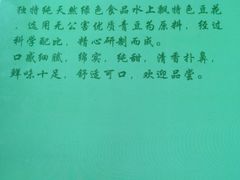 独特纯天然绿色食品水上飘特色豆花
，选用无公害优质青豆为原料，经过
科学配比，精心研制而成。
口感细腻，绵实，纯甜，清香扑鼻，
鲜味十足，舒适可口，欢迎品尝。